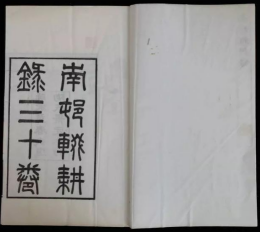 南邨輟耕
錄三十卷